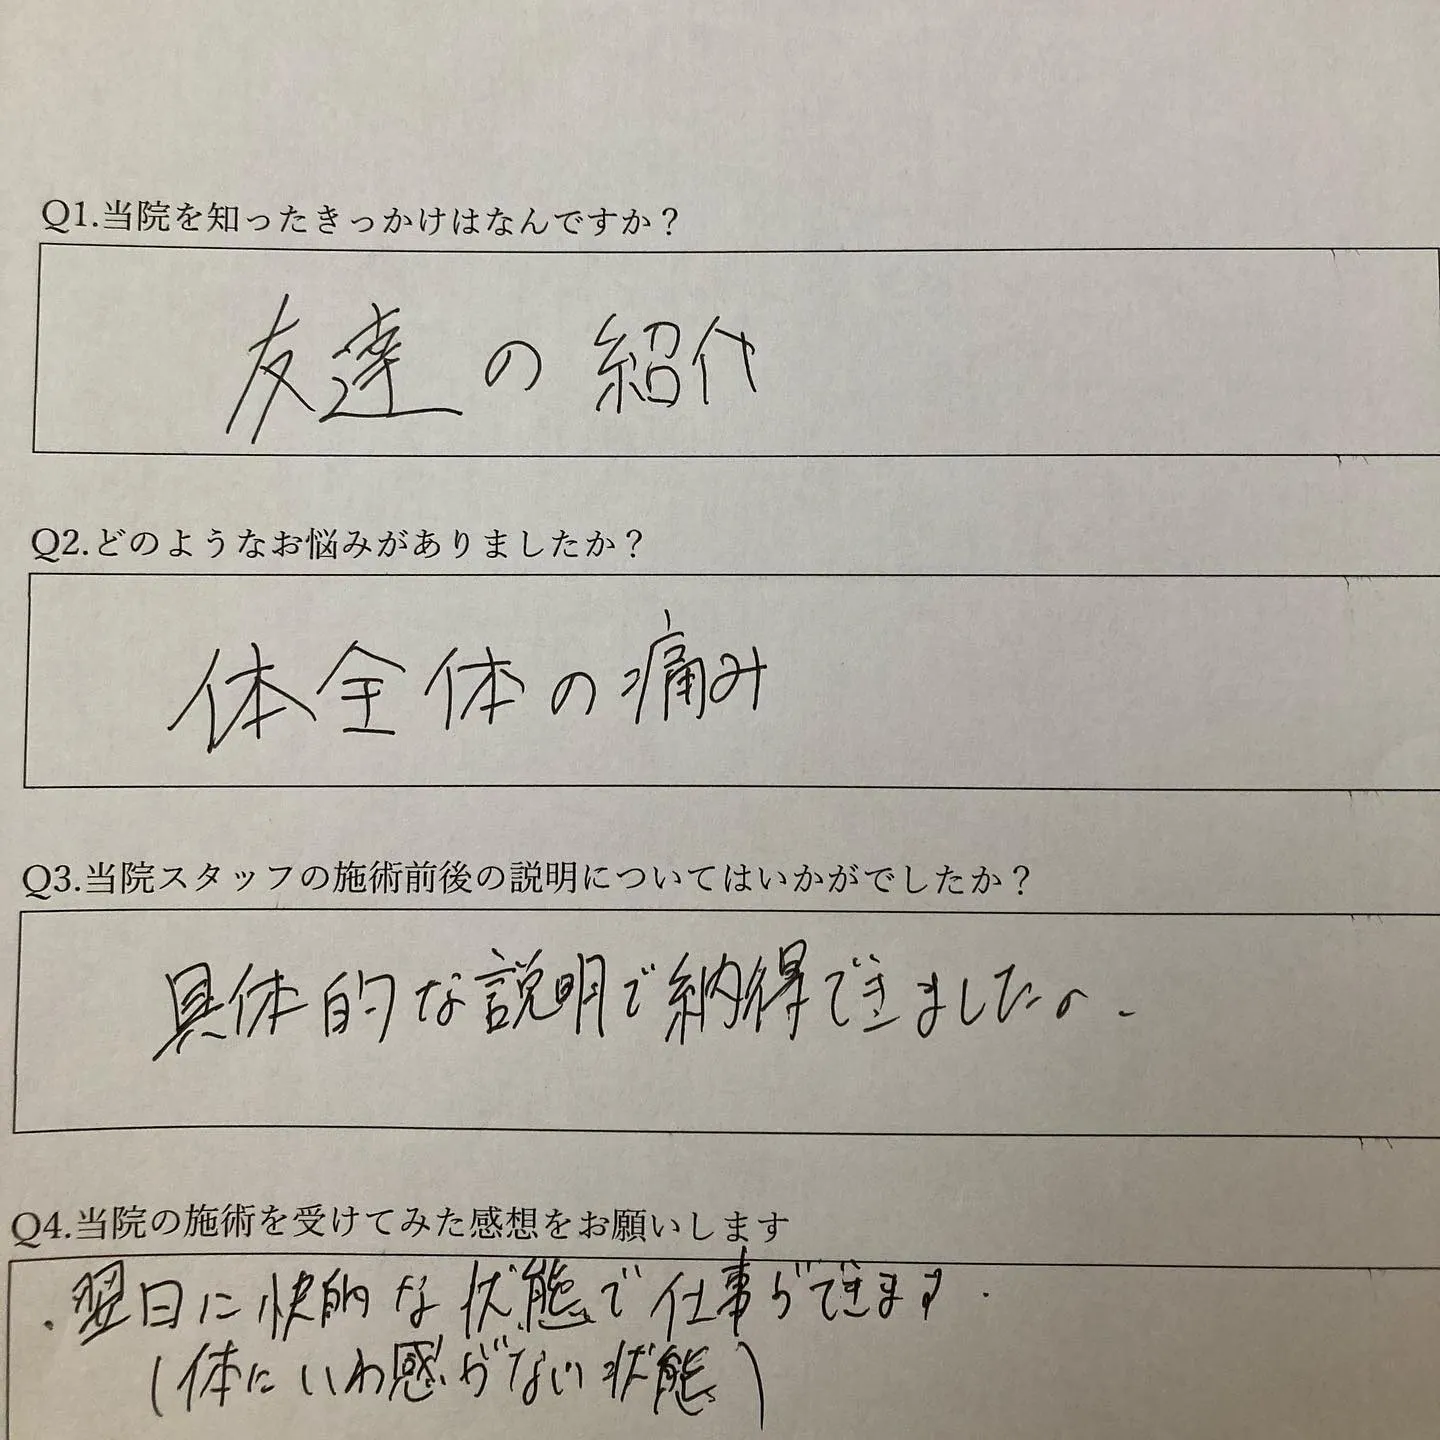 Q1.当院を知ったきっかけはなんですか？
友達の紹代
Q2.どのようなお悩みがありましたか？
体全体の痛み
Q3.当院スタッフの施術前後の説明についてはいかがでしたか？
具体的な説明で納得できました。
Q4.当院の施術を受けてみた感想をお願いします
・翌日に快的な状態で仕事ができます.
(体にいわ感がない状態)